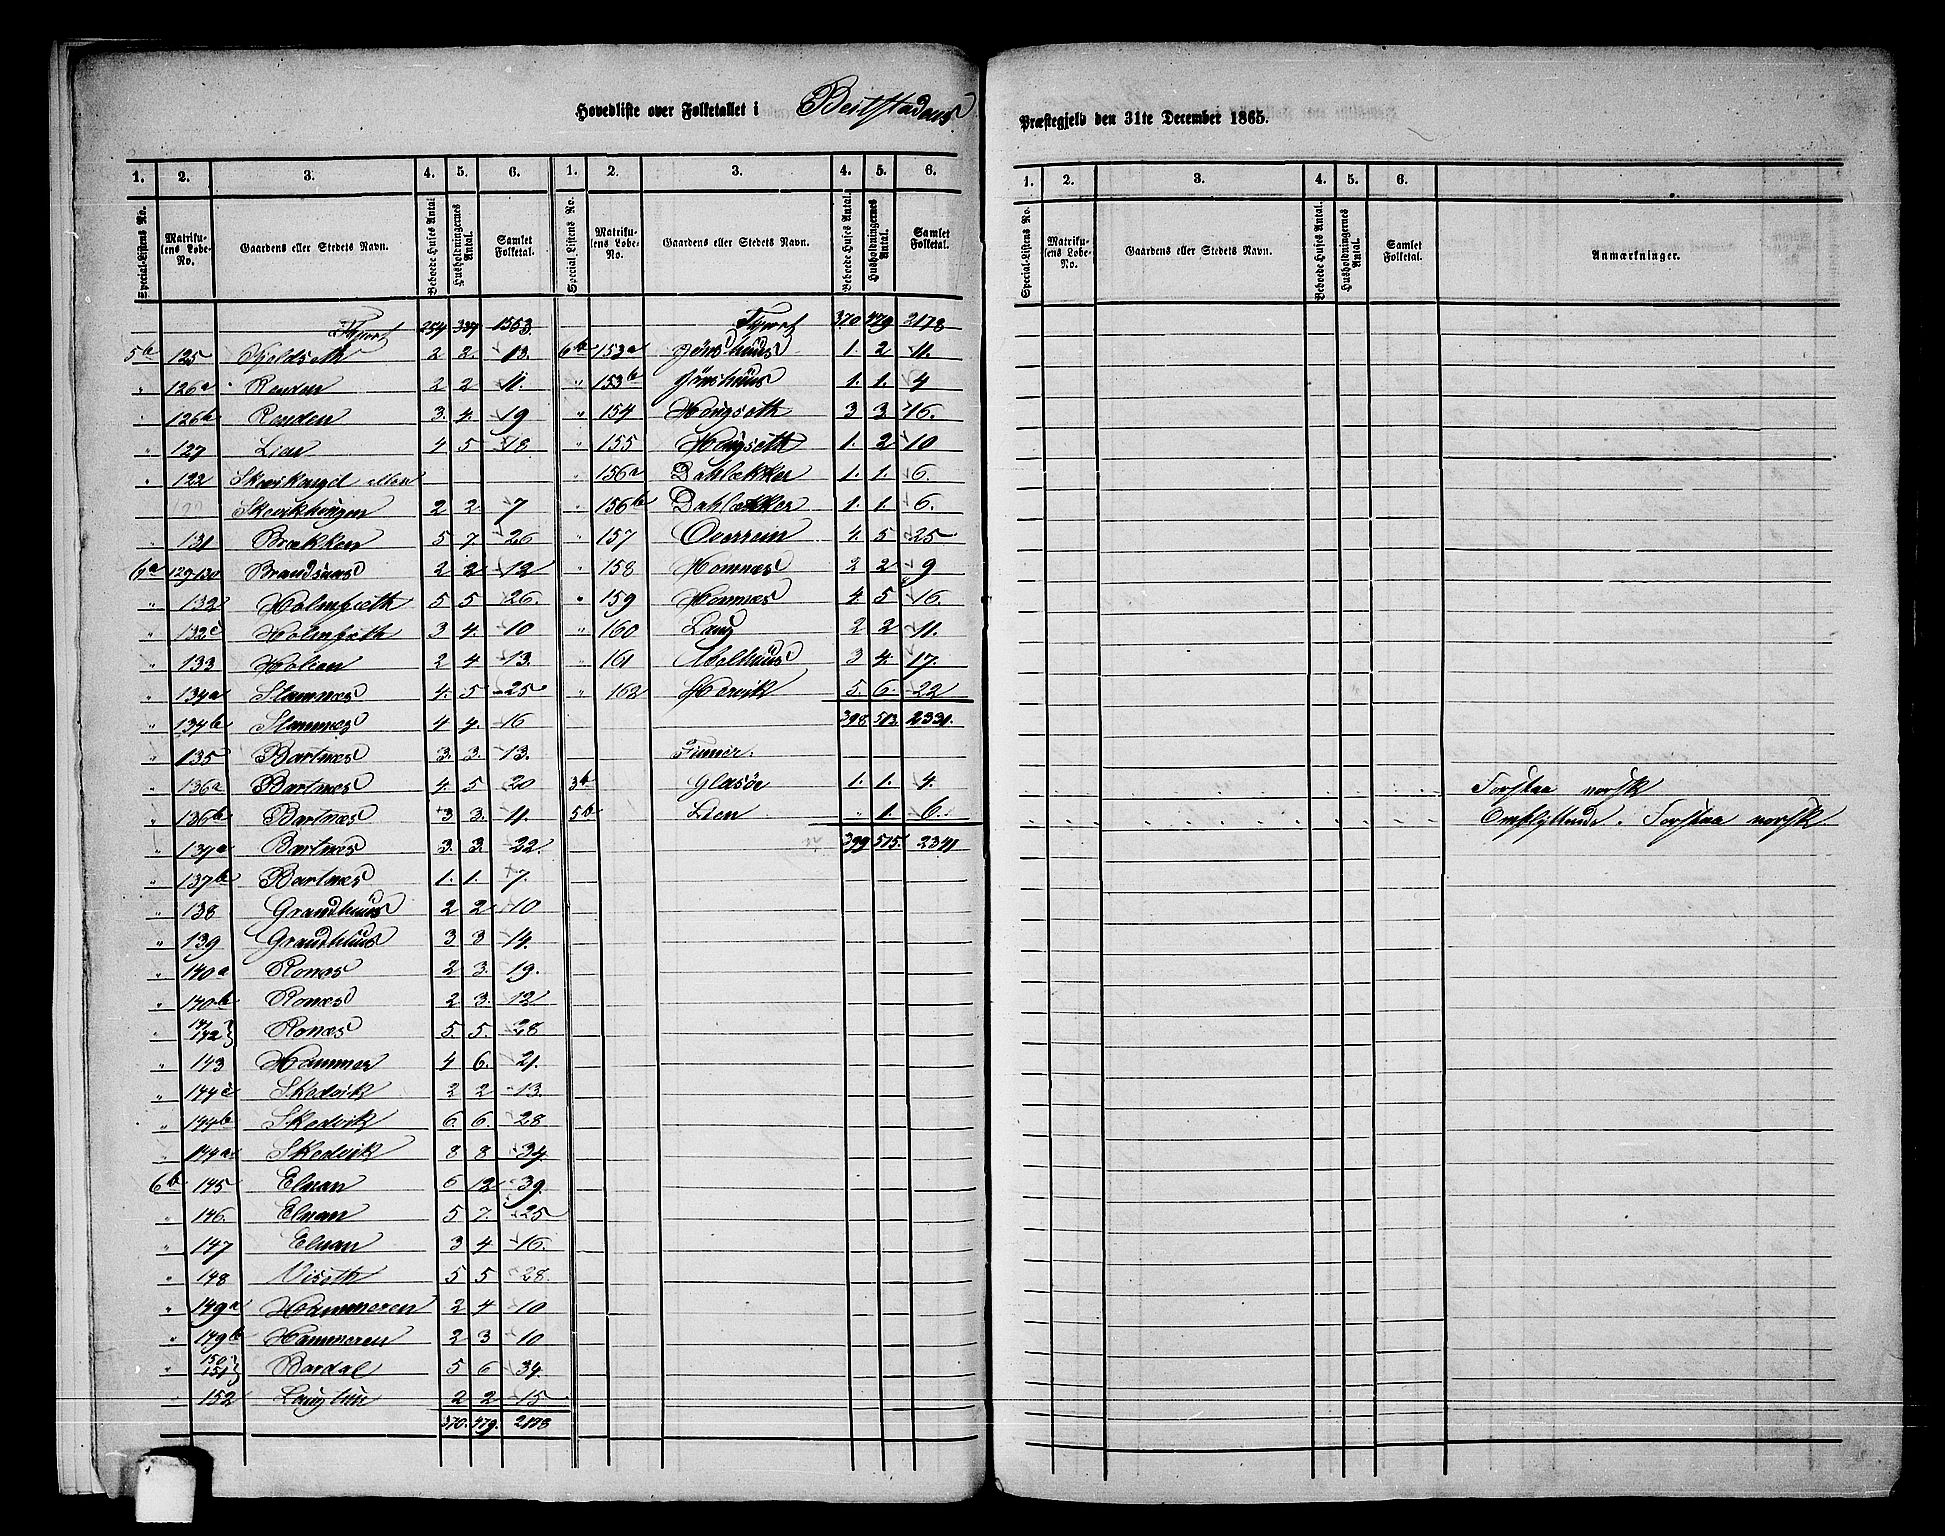 Hovedliste over Folketallet i Beitstadens
Præstegjeld den 31te December 1865.
1. 2. 3. 4. 5. 6. 1. 2. 3. 4. 5. 6.
Special-Listens No. Matrikulens Løbe-No. Gaardens eller Stedets Navn. Beboede Huses Antal Husholdningernes Antal. Samlet Folketal. Special Listens No. Matrikulens Løbe-No. Gaardens eller Stedets Navn. Beboede Huses Antal. Husholdningernes Antal. Samlet Folketal.
370 479 2178
5b 125 2 2. 13. 6b 153a Jønshuus 1. 2 11.
" 126a Renden 2 2 11. " 153b Jønshuus 1. 1. 4
126b Renden 3. 4. 19 " 154 Haugseth 3 3 16.
" 127 Lian 4 5 18 " 155 Haugseth 1. 2 10
" 122 " 156a Dahlækker 1. 1. 6.
2 2. 7 " 156b Dahlækker 1. 1. 6
" 131 Brækken 5 7. 26 " 157 Overrein 4. 5 25
6a 129-130 2 2 12 " 158 Homnæs 2 2 9
" 132 5 5 26. " 159 Homnæs 4. 5 16.
" 132c 3 4. 10 " 160 Laug 2 2 11.
" 133 Holien 2 4 13. " 161 Abelhuus 3 4. 17.
" 134a Stamnæs 4. 5 25 " 162 Hervik 5. 6. 22
" 134b Stamnæs 4 4. 16 398 513. 2331.
" 135 Bartnæs 3. 3. 13. Finner.
" 136a Bartnæs 4. 5 20 3b Glasøe 1. 1. 4.
" 136b Bartnæs 3 3. 11. 5b Lien " 1. 6.
" 137a Bartnæs 3. 3. 22. 399 515. 2341
" 137b Bartnæs 1. 1. 7.
" 138 Grandhuus 2 2 10
" 139 Grandhuus 3 3 14.
" 140a Ronæs 2 3. 19.
" 140b Ronæs 2 3. 12
" 141 142} Ronæs 5. 5. 28
" 143 Hammer 4 6. 21.
" 144c Skedvik 2 2 13.
" 144b Skedvik 6. 6. 28
" 144a Skedvik 8 8 34
6b 145 Elnan 6 12 39.
" 146. Elnan 5 7. 25
" 147 Elnan 3 4 16.
" 148 Viseth 5 5 28.
" 149a Hammeren 2 4 10
" 149b Hammeren 2 3 10
" 150 151} Bardal 5 6 34.
152 2 2 15
370. 479. 2178
1. 2. 3. 4. 5. 6.
Special-Listens No. Matrikulens Løbe-No. Gaardens eller Stedets Navn. Beboede Huses Antal. Husholdningernes Antal. Samlet Folketal. Anmærkninger.
Forstaa norsk
Omflyttende. Forstaa norsk